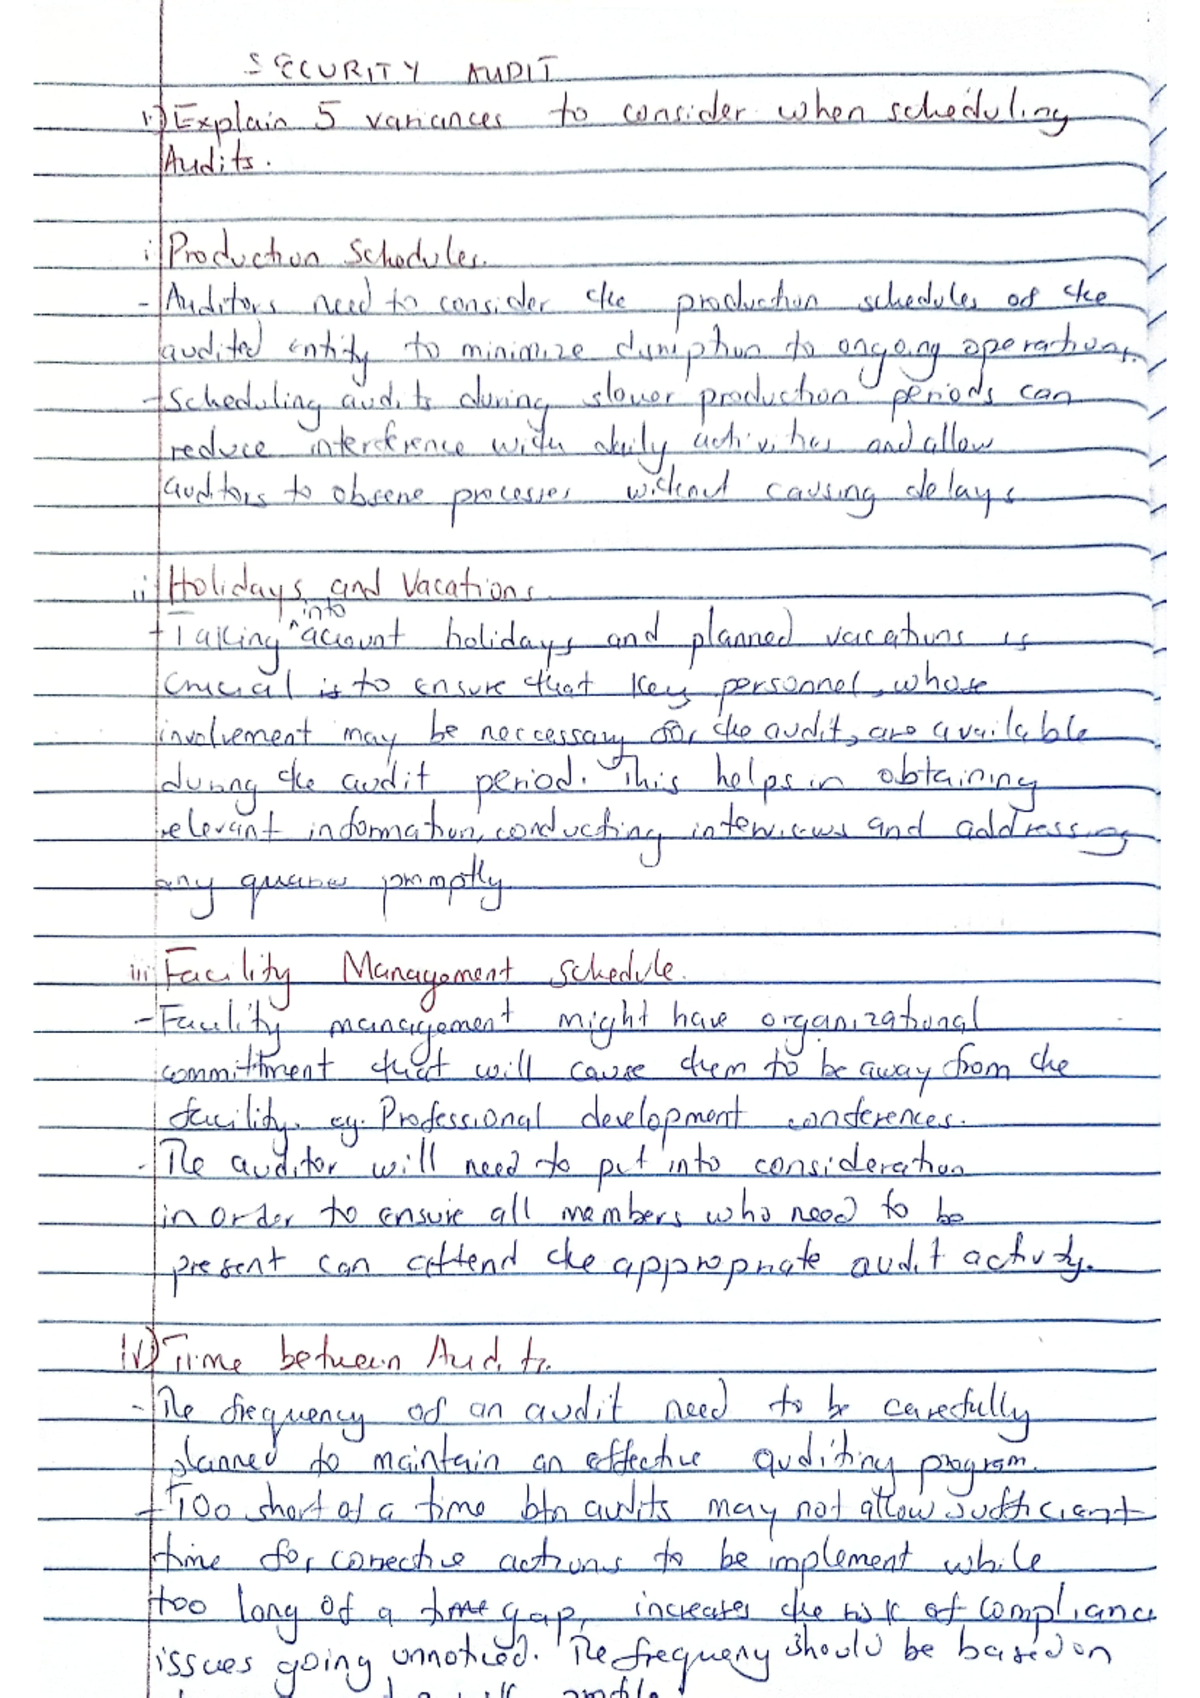 SECURITY AUDIT
1.) Explain 5 variances to consider when scheduling
Audits.
i Production Schedules.
- Auditors need to consider the production schedules of the
audited entity to minimize disruption to ongoing operations.
- Scheduling audits during slower production periods can
reduce interference with daily activities and allow
auditors to observe processes without causing delays
ii Holidays and Vacations
- Taking into account holidays and planned vacations is
crucial is to ensure that key personnel, whose
involvement may be neccessary for the audit, are available
during the audit period. This helps in obtaining
relevant information, conducting interviews and addressing
any queries promptly
iii Facility Management Schedule.
- Facility management might have organizational
committment that will cause them to be away from the
facility. eg. Professional development conferences.
- The auditor will need to put into consideration
in order to ensure all members who need to be
present can attend the appropriate audit activity.
iv) Time between Audits.
- The frequency of an audit need to be carefully
planned to maintain an effective auditing program.
- Too short of a time btn audits may not allow sufficient
time for corrective actions to be implement while
too long of a time gap, increases the risk of compliance
issues going unnoticed. The frequency should be based on